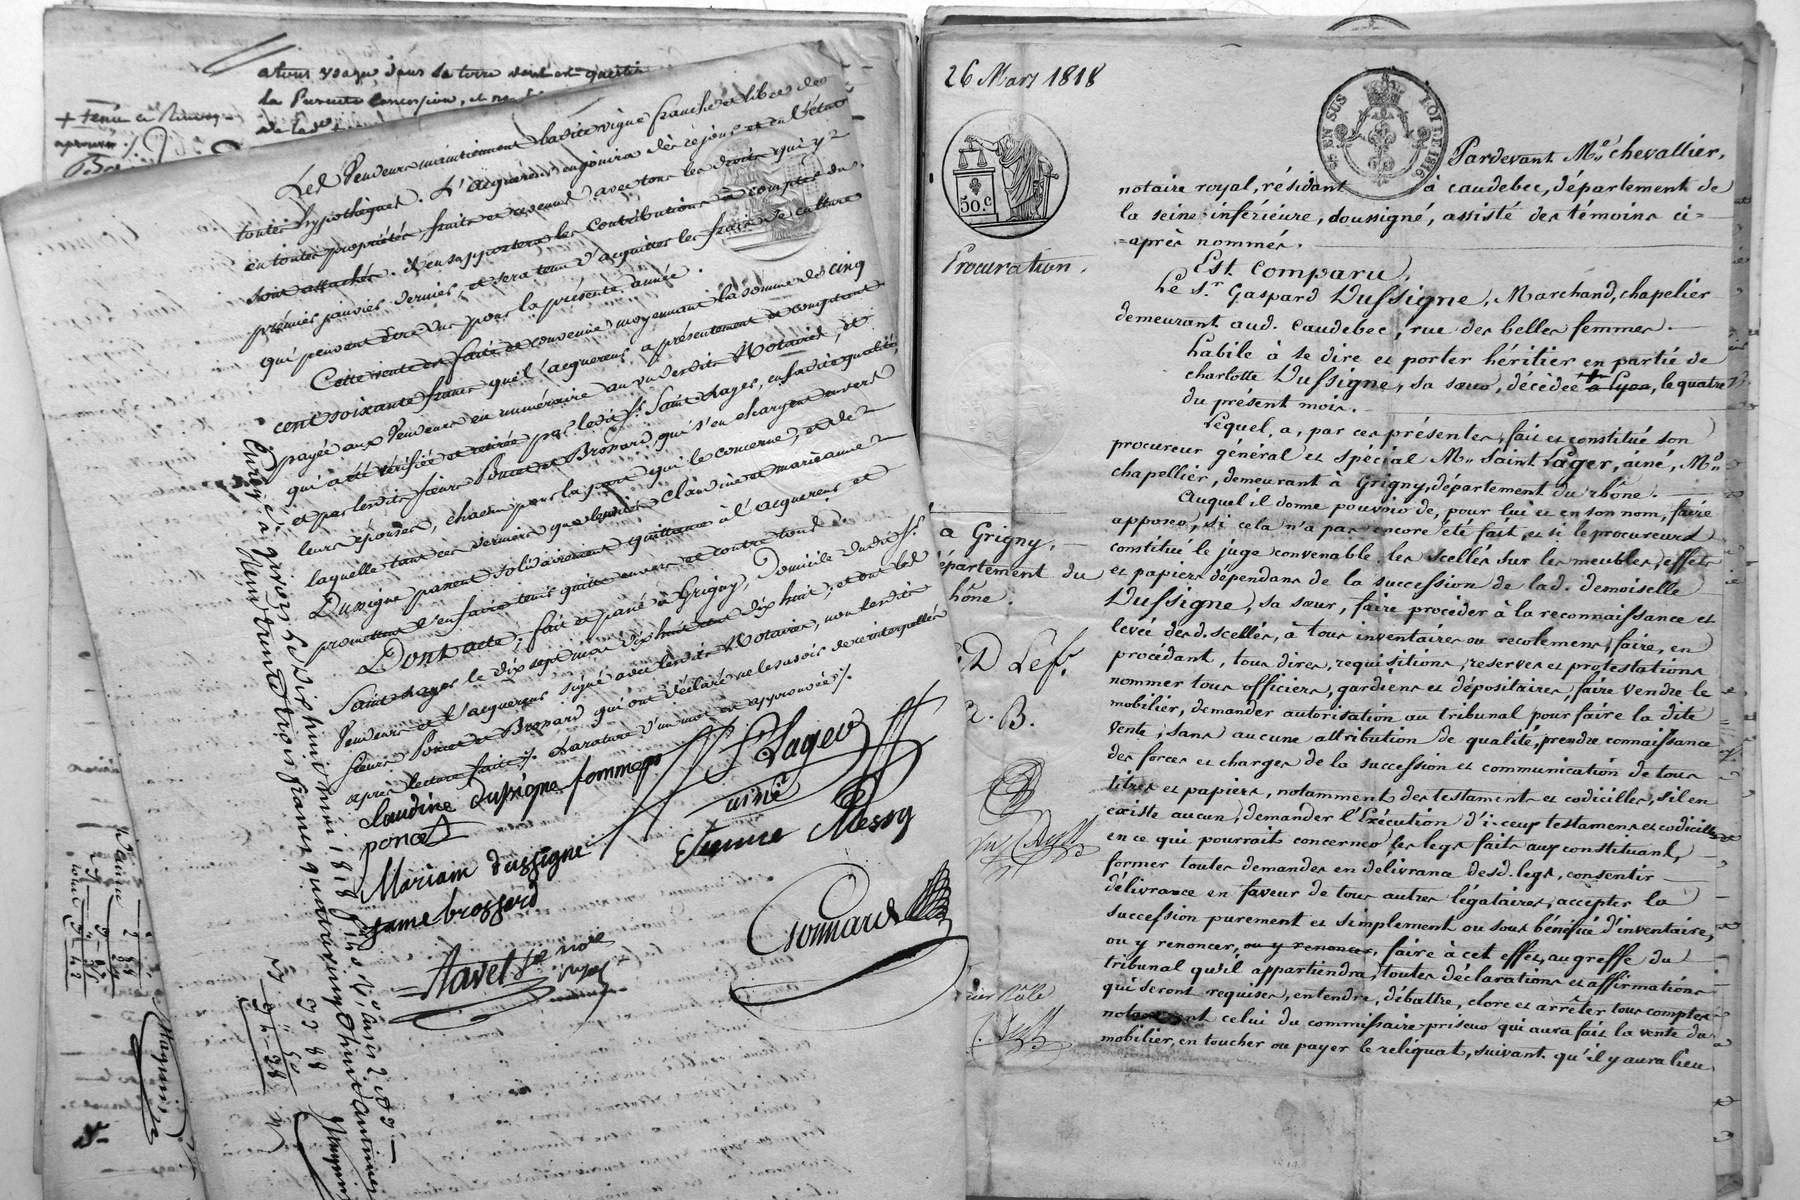 atous usage dans la terre dont est questi
+ tenu
Les Vendeurs maintiennent ladite vigne franche et libre de
toutes hypothèques. L'acquéreur en jouira dès ce jour et en l'état
en toutes propriétés, fruits et revenus, avec tous les droits qui y
sont attachés. il en supportera les Contributions à compter du
premier janvier dernier, et sera tenu d'acquitter les frais de culture
qui peuvent être dus pour la présente année.
Cette vente est faite et convenue moyennant la somme de cinq
cent soixante francs que l'acquereur a présentement et comptant
payée aux Vendeurs en numéraire au vu desdits Notaires, et
qui a été vérifiée et retirée par ledit Sr. Saint Lager, en sadite qualité,
et par lesdits sieurs Poncet et Brossard, qui s'en chargent envers
leurs épouses, chacun pour la part qui le concerne, et de
laquelle tant ces derniers que lesdites Claudine et marieanne
Dussigne passent solidairement quittance à l'acquereur et
promettent l'en faire tenir quitte envers et contre tous.
Dont acte; fait et passé à Grigny, Domicile dudit Sr.
Saint Lager le dix sept mars dix huit cent dix huit, et ont les
Vendeurs et l'acquereur signé avec lesdits Notaires, non lesdits
sieurs Poncet et Brossard qui ont déclaré ne le savoir de ce interpellés
après lecture faite ./. la rature d'un mot est approuvée ./.
Claudine dussigne femme
poncet
St Lager
ainé
Mariam dussigne
fame brossard
Etienne Messy
Ravel
26 Mars 1818
50.c
EN SUS
LOI DE 1816
Procuration.
Pardevant Me. Chevallier,
notaire royal, résidant à caudebec, département de
la seine inférieure, soussigné, assisté des témoins ci=
=après nommés.
Est Comparu,
Le Sr. Gaspard Dussigne, Marchand, chapelier
demeurant aud. Caudebec, rue des belles femmes.
habile à se dire et porter héritier en partie de
charlotte Dussigne, sa sœur, décédée + à Lyon, le quatre
du present mois.
Lequel, a, par ces présentes, fait et constitué son
procureur général et spécial Mr. Saint Lager, ainé, Md.
chapellier, demeurant à Grigny, département du rhône.
Auquel il donne pouvoir de, pour lui et en son nom, faire
apposer, si cela n'a pas encore été fait, et si le procureur
constitué le juge convenable, les scellés sur les meubles, effets
et papiers dépendans de la succession de lad. demoiselle
Dussigne, sa sœur, faire procéder à la reconnaissance et
levée desd. scellés, à tous inventaires ou recolemens, faire, en
procédant, tous dires, requisitions, reserves et protestations
nommer tous officiers, gardiens et dépositaires, faire vendre le
mobilier, demander autorisation au tribunal pour faire la dite
vente, sans aucune attribution de qualité, prendre connaissance
des forces et charges de la succession et communication de tous
titres et papiers, notamment des testaments et codicilles, s'il en
existe aucun, demander l'Exécution d'iceux testamens et codicilles
en ce qui pourrait concerner les legs faits aux constituant,
former toutes demandes en delivrance desd. legs, consentir
délivrance en faveur de tous autres légataires, accepter la
succession purement et simplement ou sous bénéfice d'inventaire,
ou y renoncer, ou y renoncer, faire à cet effet, au greffe du
tribunal qu'il appartiendra, toutes déclarations et affirmations
qui seront requises, entendre, débattre, clore et arrêter tous comptes
notamment celui du commissaire priseur qui aura fait la vente du
mobilier, en toucher ou payer le reliquat, suivant qu'il y aura lieu
à Grigny,
département du
hône.
D Lefr.
2. B.